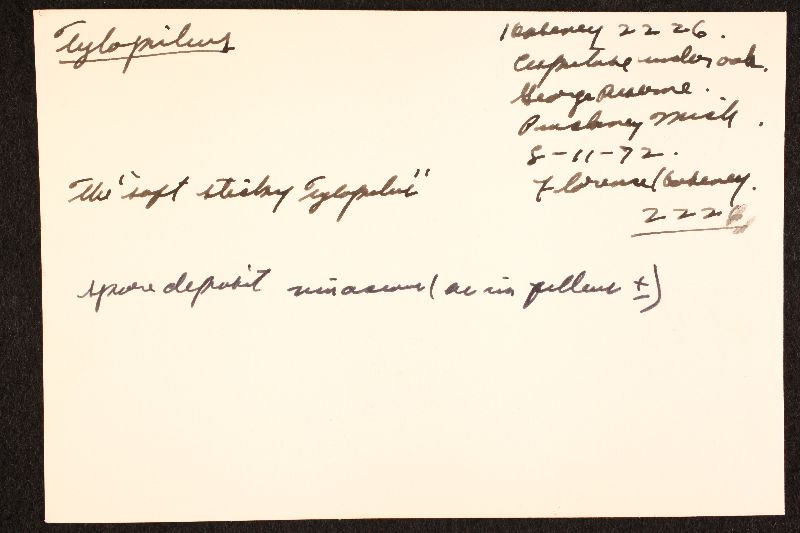 Tylopilus
Hoseney 2226.
Cespitose under oak.
George Reserve.
Pinckney Mich.
8-11-72.
Florence Hoseney.
2226
The "soft sticky Tylopilus"
spore deposit vinaceous (as in felleus ±)